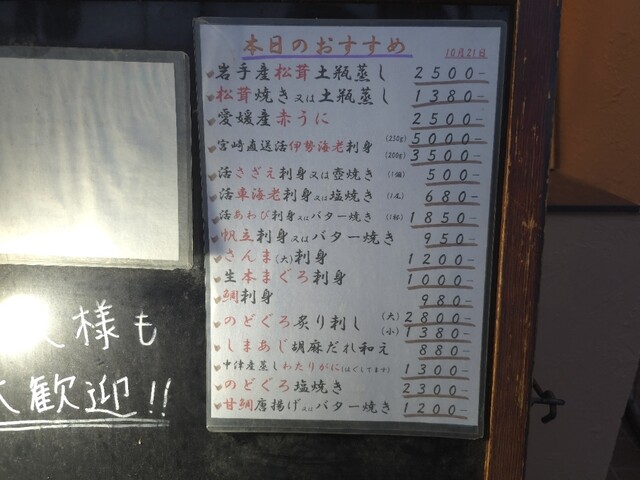 本日のおすすめ 10月21日
岩手産松茸土瓶蒸し 2500-
松茸焼き又は土瓶蒸し 1380-
愛媛産赤うに 2500-
宮崎直送活伊勢海老刺身 (250g) 5000-
(200g) 3500-
活さざえ刺身又は壺焼き (1個) 500-
活車海老刺身又は塩焼き 680-
活あわび刺身又はバター焼き (1杯) 1850-
帆立刺身又はバター焼き 950-
さんま(大)刺身 1200-
生本まぐろ刺身 1000-
鯛刺身 980-
のどぐろ炙り刺し (大) 2800-
(小) 1380-
しまあじ胡麻だれ和え 880-
中津産蒸しわたりがに(ほぐしてます) 1300-
のどぐろ塩焼き 2300-
甘鯛唐揚げ又はバター焼き 1200-
様も
歓迎!!